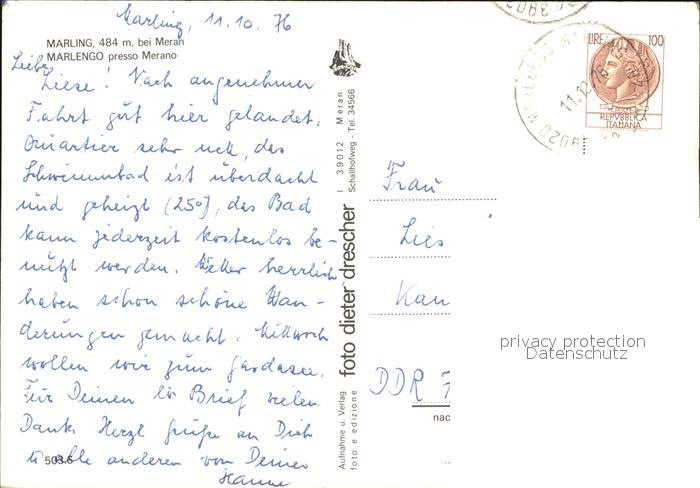 Marling, 11.10.76
MARLING, 484 m, bei Meran
MARLENGO presso Merano
Liebe
Liese! Nach angenehmer
Fahrt gut hier gelandet.
Quartier sehr nett, das
Schwimmbad ist überdacht
und geheizt (25°), das Bad
kann jederzeit kostenlos be-
nützt werden. Wetter herrlich
haben schon schöne Wan-
derungen gemacht. Mittwoch
wollen wir zum Gardasee.
Für Deinen lb Brief vielen
Dank. Herzl Grüße an Dich
u alle anderen von Deiner
Hanne
503.6
Aufnahme u. Verlag
foto e edizione
foto dieter drescher
I 39012 Meran
Schallhofweg - Tel. 34566
LIRE 100
REPVBBLICA
ITALIANA
39020 MARLENGO
11.10.76
Frau
Lies
Kau
DDR 7
nac
privacy protection
Datenschutz